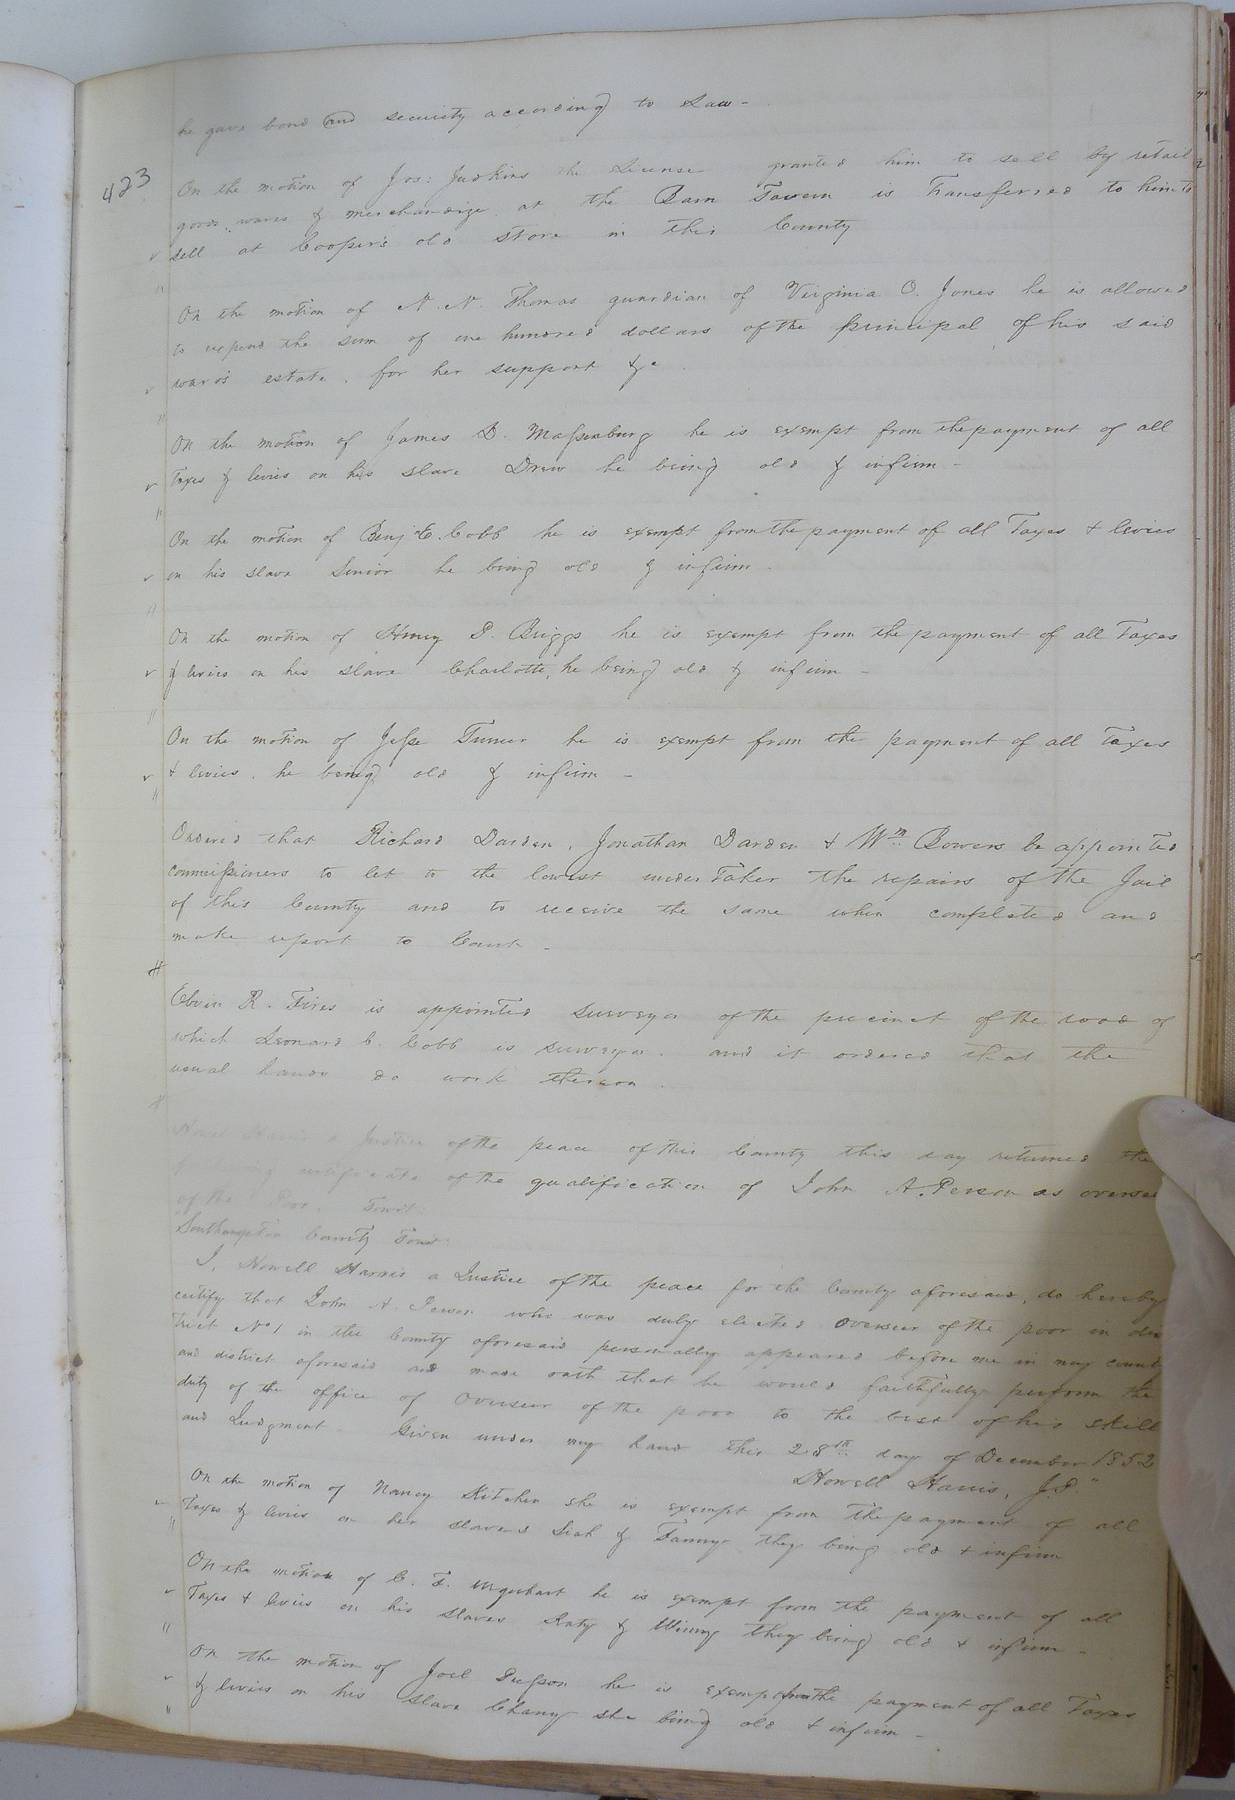 he gave bond and security according to Law -
423
On the motion of Jos: Judkins the License granted him to sell by retail
goods, wares & merchandize at the Barn Tavern is Transferred to him to
sell at Cooper's old store in this County
On the motion of N. N. Thomas guardian of Virginia O. Jones he is allowed
to expend the sum of one hundred dollars of the principal of his said
ward's estate, for her support &c
On the motion of James D. Massenburg he is exempt from the payment of all
Taxes & levies on his slave Drew he being old & infirm -
On the motion of Benj E. Cobb he is exempt from the payment of all Taxes + levies
on his slave Senior he being old & infirm
On the motion of Henry P. Briggs he is exempt from the payment of all Taxes
& levies on his slave Charlotte, he being old & infirm -
On the motion of Jesse Turner he is exempt from the payment of all taxes
+ levies, he being old & infirm -
Ordered that Richard Darden, Jonathan Darden + Wm Bowers be appointed
commissioners to let to the lowest undertaker the repairs of the Jail
of this County and to receive the same when completed and
make report to Court -
R. is appointed surveyor of the precinct of the road of
which Leonard C. Cobb is surveyor. and it ordered that the
usual hands do work thereon.
Howell Harris a Justice of the peace of this County this day returned the
following certificate of the qualification of John A. Person as overseer
of the Poor, Towit:
Southampton County Towit:
I, Howell Harris a Justice of the peace for the County aforesaid, do hereby
certify that John A. Person who was duly elected overseer of the poor in dis
trict No 1 in the County aforesaid personally appeared before me in my county
and district aforesaid and made oath that he would faithfully perform the
duty of the office of Overseer of the poor to the best of his skill
and Judgment. Given under my hand this 28th day of December 1852
Howell Harris, J.P."
On the motion of Nancy Kitchen she is exempt from the payment of all
Taxes & levies on her slaves & Fanny they being old + infirm
On the motion of C. F. Urquhart he is exempt from the payment of all
Taxes + levies on his slaves Katy & Winny they being old + infirm -
On the motion of Joel he is exempt from the payment of all Taxes
& levies on his slave Chany she being old + infirm -